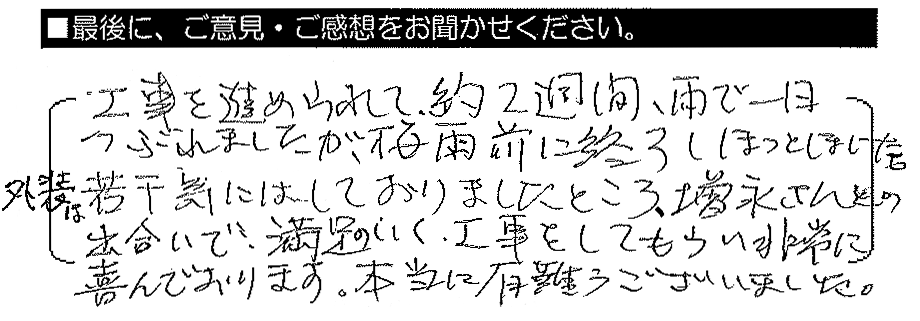 ■最後に、ご意見・ご感想をお聞かせください。
工事を進められて、約2週間、雨で一日
つぶれましたが、梅雨前に終了しほっとしました。
外装は若干気にはしておりましたところ、増永さんとの
出合いで、満足のいく、工事をしてもらい非常に
喜んでおります。本当に有難うございました。